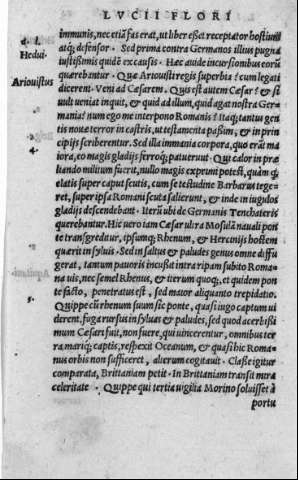 LVCII FLORI
immunis, nec etiã fas erat, ut liber esset receptator hostiũ
d. l.
atq; defensor · Sed prima contra Germanos illius pugna
Hedui.
iustissimis quidẽ ex causis · Haec de incursionibus eorũ
querebantur · Quæ Ariouisti regis superbia! cum legati
Ariouistus
dicerent Veni ad Cæsarem · Quis est autem Cæsar? & si
uult ueniat inquit, & quid ad illum, quid agat nostra Ger
mania? num ego me interpono Romanis? Itaq; tantus gen
tis nouæ terror in castris, ut testamẽta passim, & in prin
cipijs scriberentur. Sed illa immania corpora, quo erãt ma
4.
iora, eo magis gladijs ferroq; patuerunt · Qui calor in præ
liando militum fuerit, nullo magis exprimi potest, quàm q̃
elatis super caput scutis, cum se testudine Barbarus tege
ret, super ipsa Romani scuta salierunt, & inde in iugulos
gladijs descendebant · Iterũ ubi de Germanis Tenchateri
querebantur. Hic uero iam Cæsar ultra Mosulã nauali pon
te transgreditur, ipsumq; Rhenum, & Hercinijs hostem
quærit in syluis · Sed in saltus & paludes genus omne diffu
gerat, tantum pauoris incussit intra ripam subito Roma
na uis, nec semel Rhenus, & iterum quoq;, et quidem pon
te facto, penetratus est, sed maior aliquanto trepidatio.
Quippe cũ rhenum suum sic ponte, quasi iugo captum ui
derent, fuga rursus in syluas & paludes, sed quod acerbissi
mum Cæsari fuit, non fuere, qui uincerentur, omnibus ter
ra mariq; captis, respexit Oceanum, & quasi hic Roma-
nus orbis non sufficeret, alterum cogitauit · Classe igitur
comparata, Brittaniam petit · In Brittaniam transit mira
celeritate · Quippe qui tertia uigilia Morino soluisset à
portu